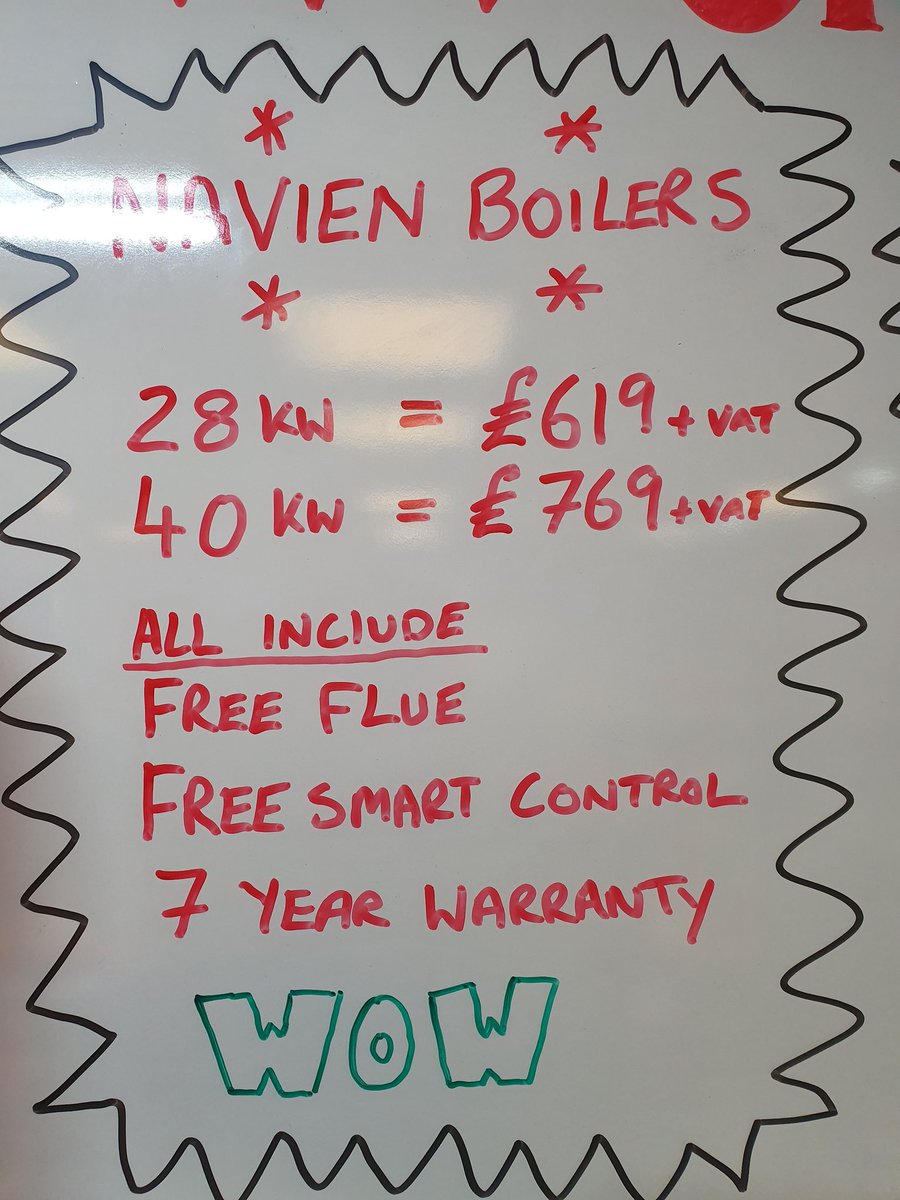 * *
NAVIEN BOILERS
* *
28 KW = £619 + VAT
40 KW = £769 + VAT
ALL INCLUDE
FREE FLUE
FREE SMART CONTROL
7 YEAR WARRANTY
WOW